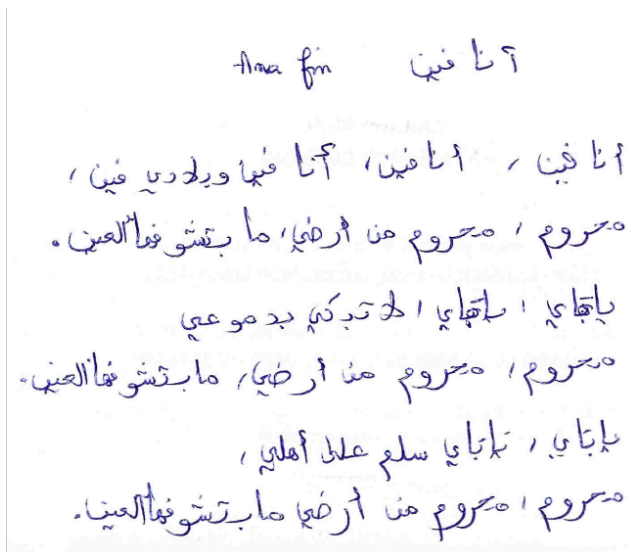 أنا فين Ana fin
أنا فين، أنا فين، أنا فين وبلادي فين،
محروم، محروم من أرضي، ما بتشوفها العين.
ياتاي، ياتاي، لا تبكي بدموعي
محروم، محروم من أرضي، ما بتشوفها العين.
ياتاي، ياتاي سلم على أهلي،
محروم، محروم من أرضي ما بتشوفها العين.